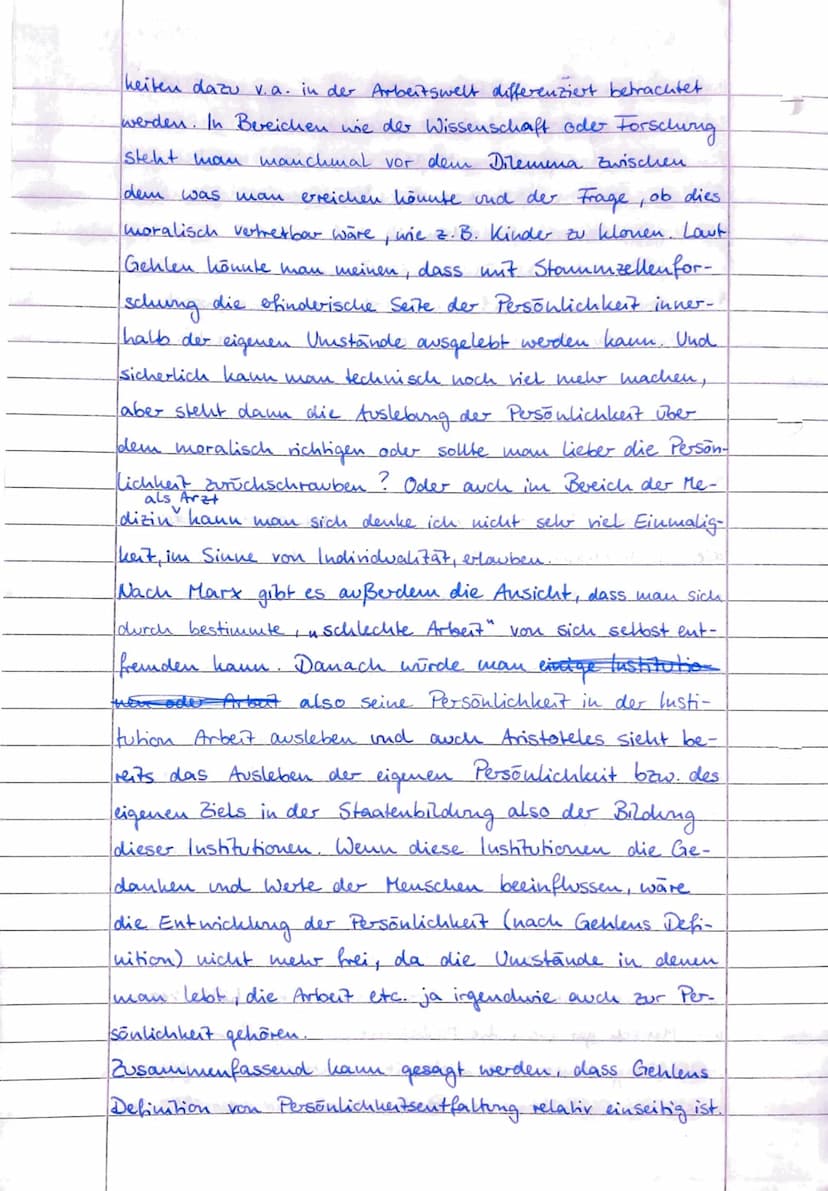 heiten dazu v.a. in der Arbeitswelt differenziert betrachtet
werden. In Bereichen wie der Wissenschaft oder Forschung
steht man manchmal vor dem Dilemma zwischen
dem was man erreichen könnte und der Frage, ob dies
moralisch vertretbar wäre, wie z.B. Kinder zu klonen. Laut
Gehlen könnte man meinen, dass mit Stammzellenfor-
schung die efinderische Seite der Persönlichkeit inner-
halb der eigenen Umstände ausgelebt werden kann. Und
sicherlich kann man technisch noch viel mehr machen,
aber steht dann die Auslebung der Persönlichkeit über
dem moralisch richtigen oder sollte man lieber die Persön-
lichkeit zurückschrauben? Oder auch im Bereich der Me-
als Arzt
dizin kann man sich denke ich nicht sehr viel Einmalig-
keit, im Sinne von Individualität, erlauben.
Nach Marx gibt es außerdem die Ansicht, dass man sich
durch bestimmte, „schlechte Arbeit" von sich selbst ent-
fremden kann. Danach würde man einige Institutio-
nen oder Arbeit also seine Persönlichkeit in der Insti-
tution Arbeit ausleben und auch Aristoteles sieht be-
reits das Ausleben der eigenen Persönlichkeit bzw. des
eigenen Ziels in der Staatenbildung also der Bildung
dieser Institutionen. Wenn diese Institutionen die Ge-
danken und Werte der Menschen beeinflussen, wäre
die Entwicklung der Persönlichkeit (nach Gehlens Defi-
nition) nicht mehr frei, da die Umstände in denen
man lebt, die Arbeit etc. ja irgendwie auch zur Per-
sönlichkeit gehören.
Zusammenfassend kann gesagt werden, dass Gehlens
Definition von Persönlichkeitsentfaltung relativ einseitig ist.